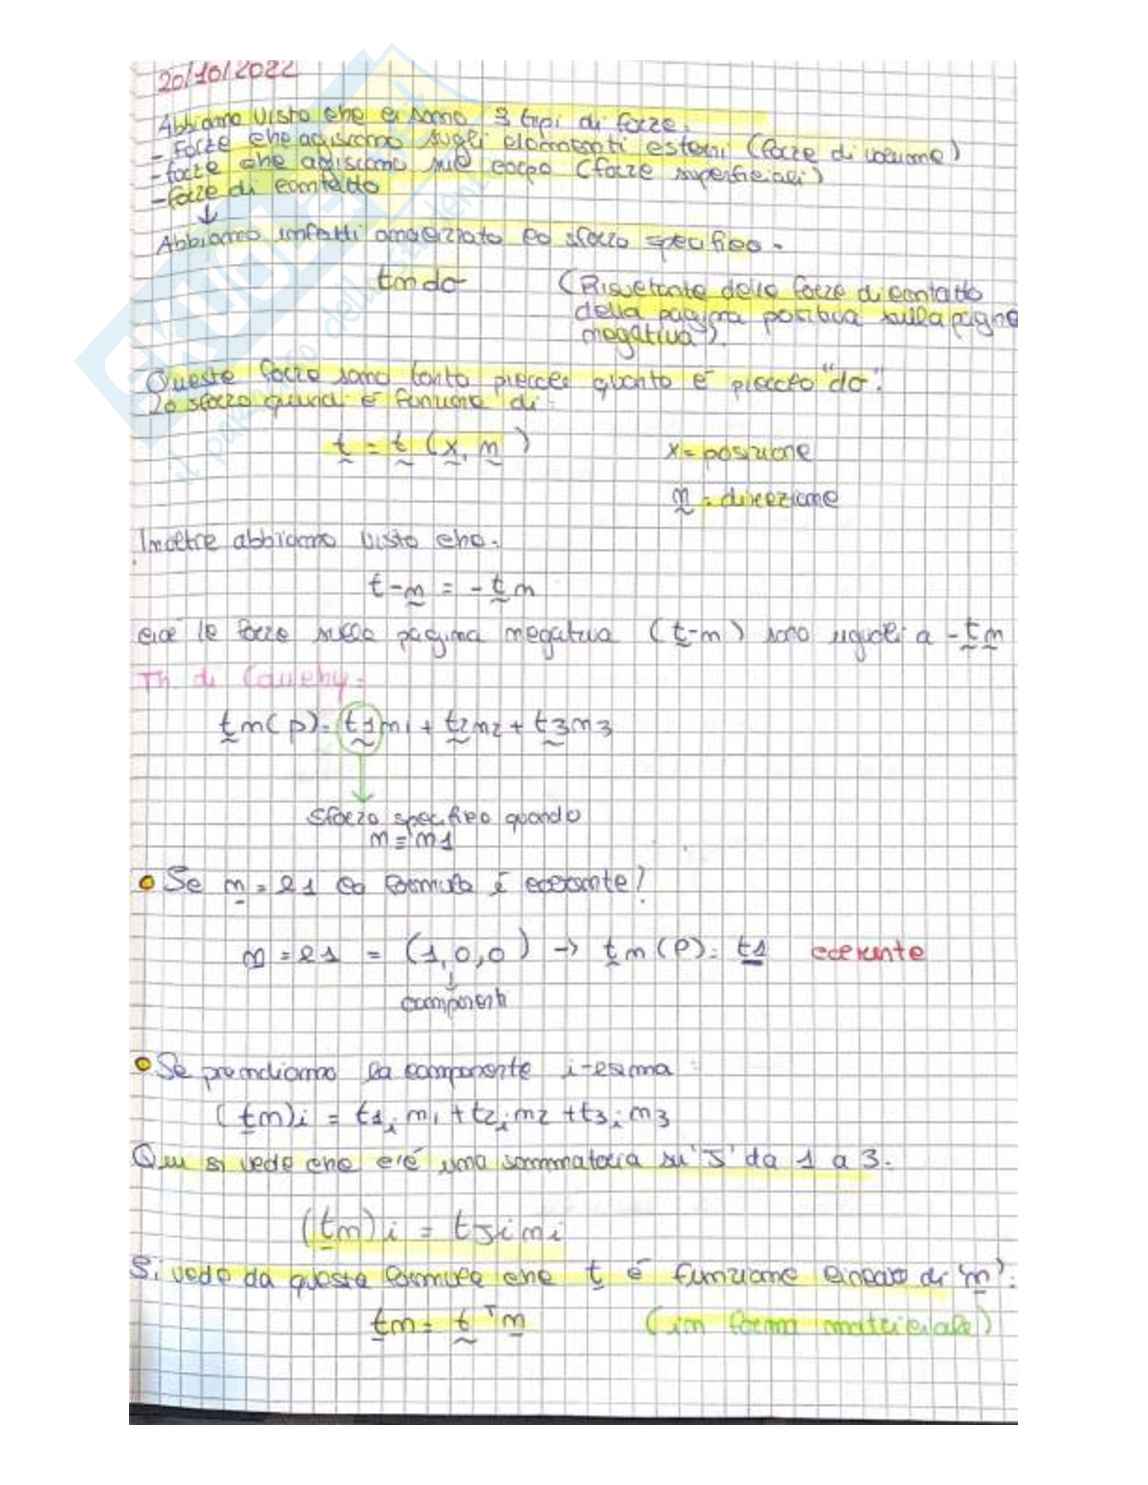 20/10/2022
Abbiamo visto che ci sono 3 tipi di forze:
- Forze che agiscono sugli elementi esterni (forze di volume)
- forze che agiscono sul corpo (forze superficiali)
- forze di contatto
↓
Abbiamo infatti analizzato lo sforzo specifico.
tn dσ (Risultante delle forze di contatto
della pagina positiva sulla pagina
negativa).
Queste forze sono tanto piccole quanto è piccolo "dσ".
Lo sforzo quindi è funzione di:
t = t (x, n) x = posizione
n = direzione
Inoltre abbiamo visto che.
t-n = - tn
cioè le forze sulla pagina negativa (t-n) sono uguali a -tn
Th di Cauchy:
tn(p) = t1n1 + t2n2 + t3n3
↓
sforzo specifico quando
n = n1
• Se n = e1 la formula è coerente?
n = e1 = (1,0,0) → tn(P) = t1 coerente
↓
componenti
• Se prendiamo la componente i-esima:
(tn)i = t1i n1 + t2i n2 + t3i n3
Qui si vede che c'è una sommatoria su 'J' da 1 a 3.
(tn)i = tJi ni
Si vede da questa formula che t è funzione lineare di 'n':
tn = tᵀn (in forma matriciale)